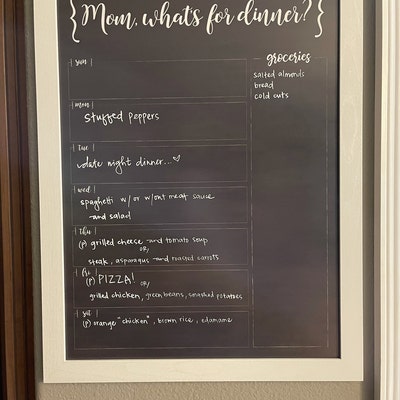 {Mom, what's for dinner?}
groceries
salted almonds
bread
cold cuts
sun
mon
stuffed peppers
tue
date night dinner...♡
wed
spaghetti w/ or w/out meat sauce
and salad
thu
(P) grilled cheese and tomato soup
OR,
steak, asparagus and roasted carrots
fri
(P) PIZZA!
OR/
grilled chicken, green beans, smashed potatoes
sat
(P) orange "chicken", brown rice, edamame